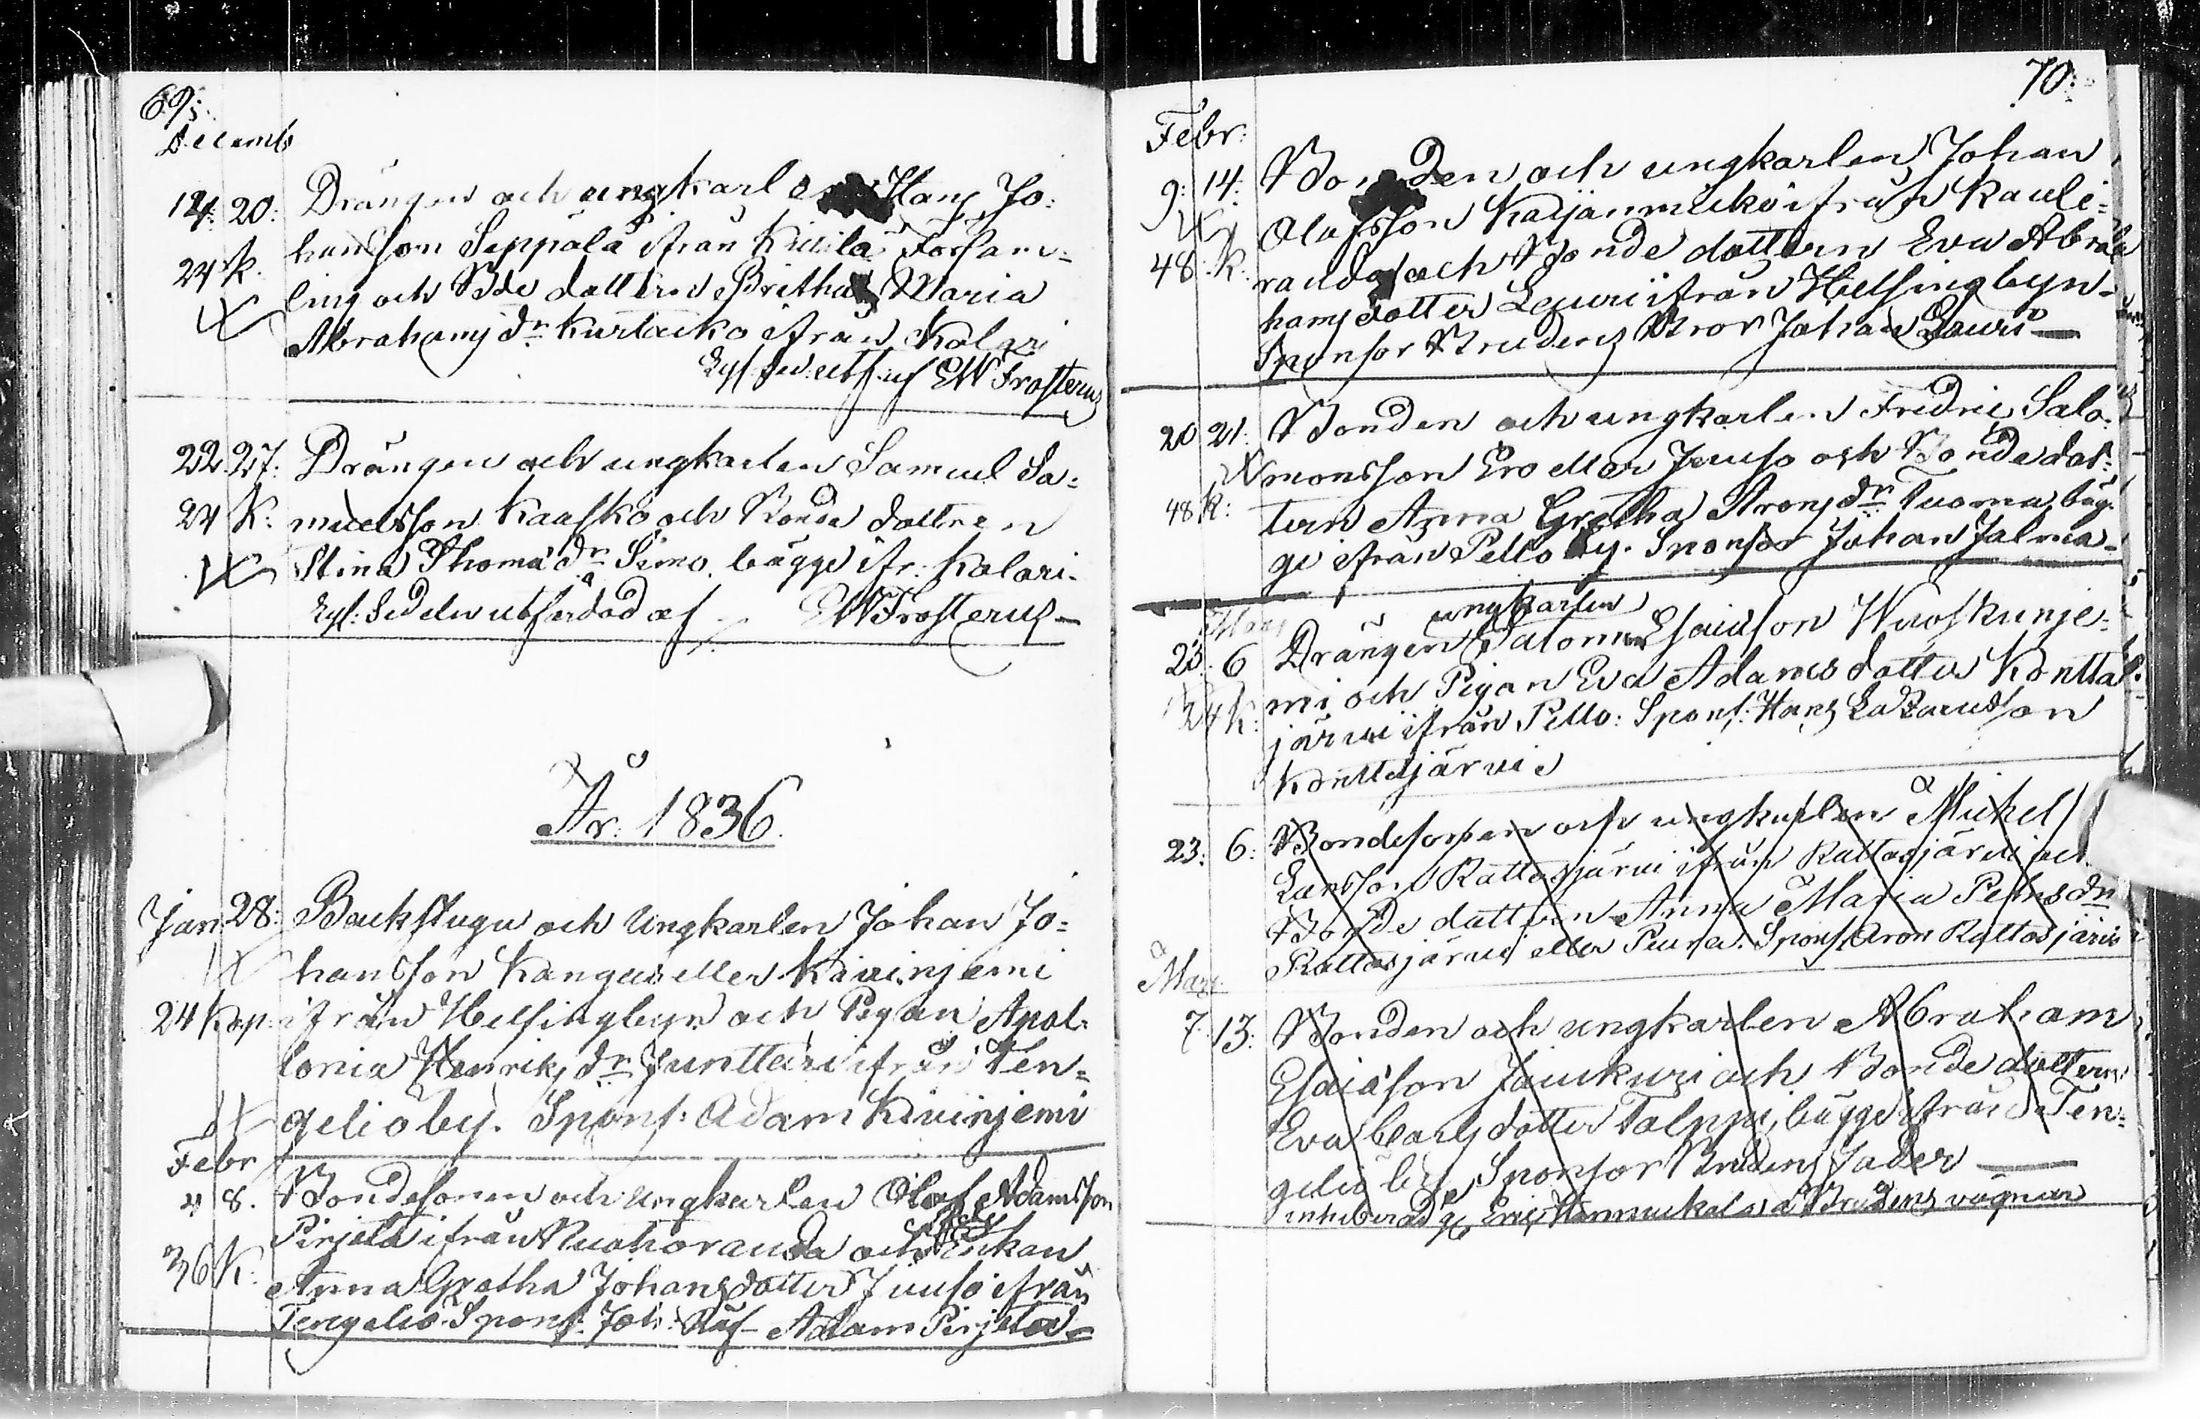 69:
Decemb
14: 20: Drängen och ungkarlen Hans Jo-
hansson Seppälä ifrån Kittilä Försam-
24 K. ling och Bde dottern Britha Maria
Abrahams dr Kurtakko ifrån Kolari
EW Frosterus
22. 27: Drängen och ungkarlen Samuel Sa-
24 K: muelsson Kaasko och Bonde dottren
Stina Thomæ dr Simo, bägge ifr. Kolari.
Lysl: Sedeln utfärdad af EW Frosterus
År 1836.
Jan 28: Backstugu och Ungkarlen Johan Jo-
hansson Kangas eller Kivinjemi
24 Kop ifrån Helsingbyn och Pigan Apol-
lonia Henriks dr Junttari ifrån Ten-
geliö by. Spons: Adam Kivinjemi
Febr
4 8. Bondesonen och ungkarlen Olof Adamsson
Pirjetä ifrån Ruohoranda och Enkan
36 K. Anna Gretha Johansdotter Juuso ifrån
Tengeliö. Spons: Joh: Adam Pirjetä
70:
Febr:
9: 14: Bonden och ungkarlen Johan
Olofsson Karjanmukko ifrån Kauli-
48 K. randa och Bonde dottern Eva Abra-
hams dotter Lauri ifrån Helsingbyn
Sponsor Brudens Bror Johan Lauri
20 21: Bonden och ungkarlen Fredric Salo-
monsson Ero eller Juuso och Bonde dot-
48 K: tern Anna Gretha Arons dr Tuoma, bäg-
ge ifrån Pello by. Sponsor Johan Jalma
Mars ungkarlen
23. 6 Drängen Salomon Esaiæson Wuoskunje-
mi och Pigan Eva Adams dotter Kontta-
24 K: järvi ifrån Pello: Spons: Hans Lazarusson
Konttajärvi
23: 6: Bondesonen och ungkarlen Mickel
Larsson Rattosjärvi ifrån Rattosjärvi och
Bonde dottren Anna Maria Pehrs dr
Rattosjärvi eller Peura. Spons. Aron Rattosjärvi
Mars
7 13: Bonden och ungkarlen Abraham
Esaiæson Jaukuri och Bonde dottern
Eva Carls dotter Talppi, bägge ifrån Ten-
geliö by, Sponsor Brudens Fader
inhiberad af Eric å Brudens vägnar